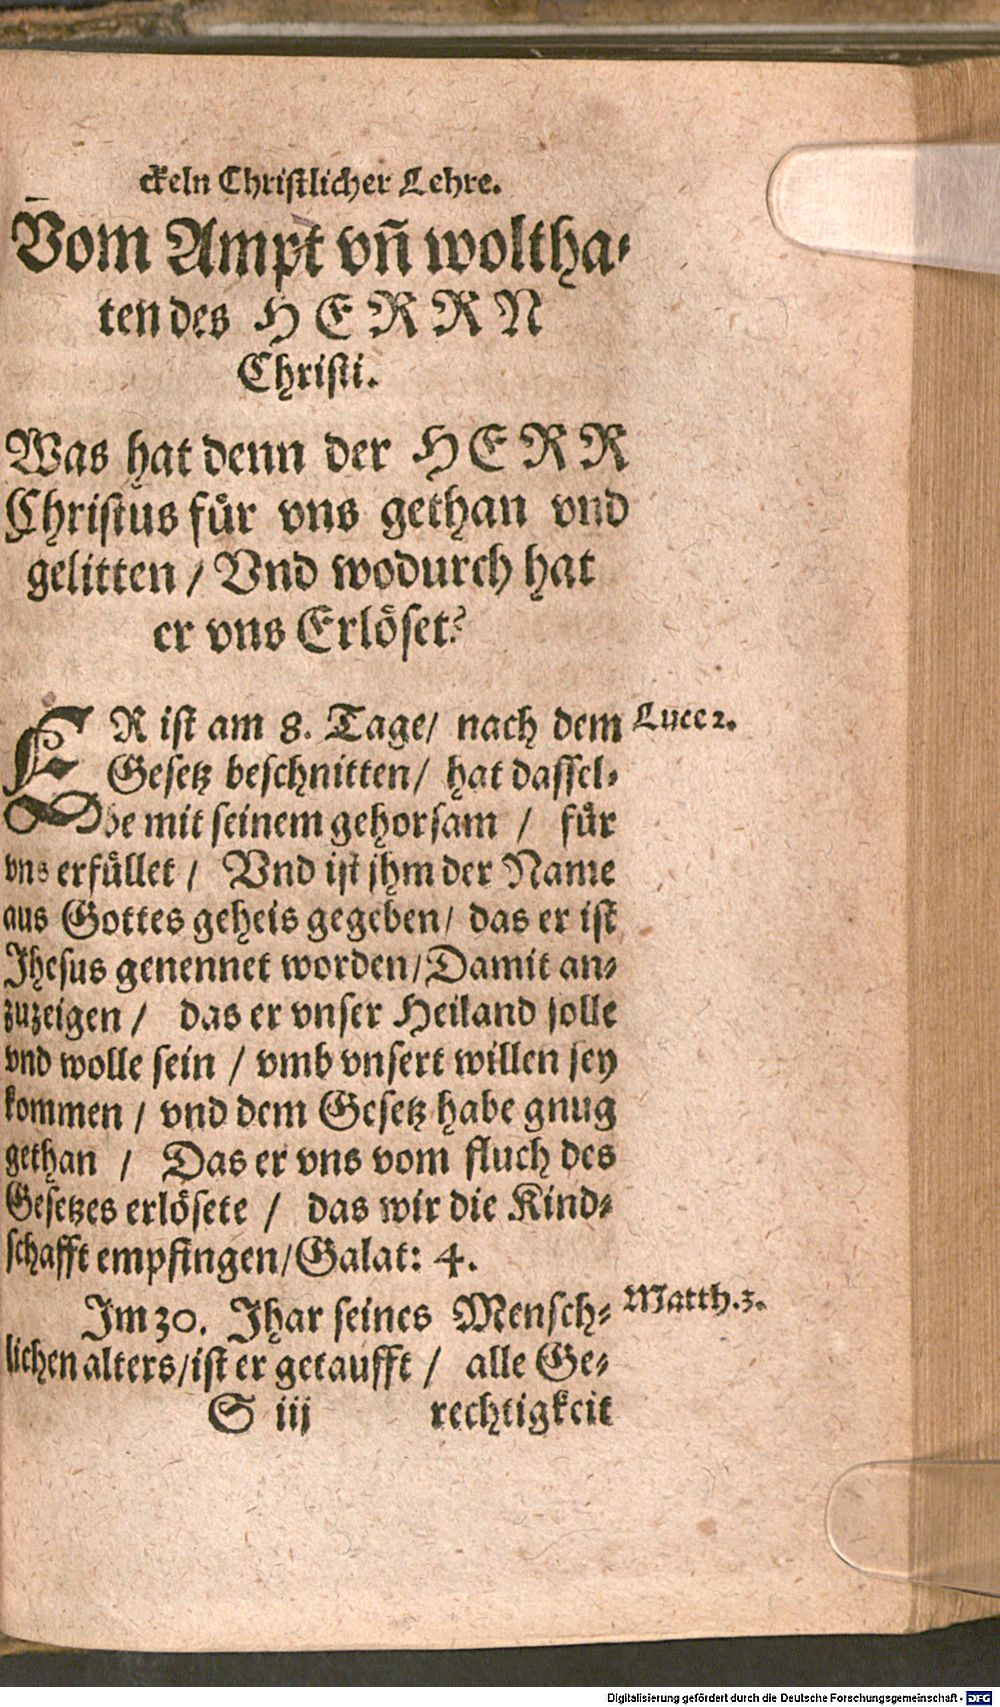 ckeln Christlicher Lehre.
Vom Ampt vñ woltha-
ten des HERRN
Christi.
Was hat denn der HERR
Christus für vns gethan vnd
gelitten / Vnd wodurch hat
er vns Erlöset?
ER ist am 8. Tage / nach dem
Luce 2.
Gesetz beschnitten / hat dassel-
be mit seinem gehorsam / für
vns erfüllet / Vnd ist jhm der Name
aus Gottes geheis gegeben / das er ist
Jhesus genennet worden / Damit an-
zuzeigen / das er vnser Heiland solle
vnd wolle sein / vmb vnsert willen sey
kommen / vnd dem Gesetz habe gnug
gethan / Das er vns vom fluch des
Gesetzes erlösete / das wir die Kind-
schafft empfingen / Galat: 4.
Im 30. Jhar seines Mensch-
Matth. 3.
lichen alters / ist er getaufft / alle Ge-
S iij rechtigkeit
Digitalisierung gefördert durch die Deutsche Forschungsgemeinschaft - DFG